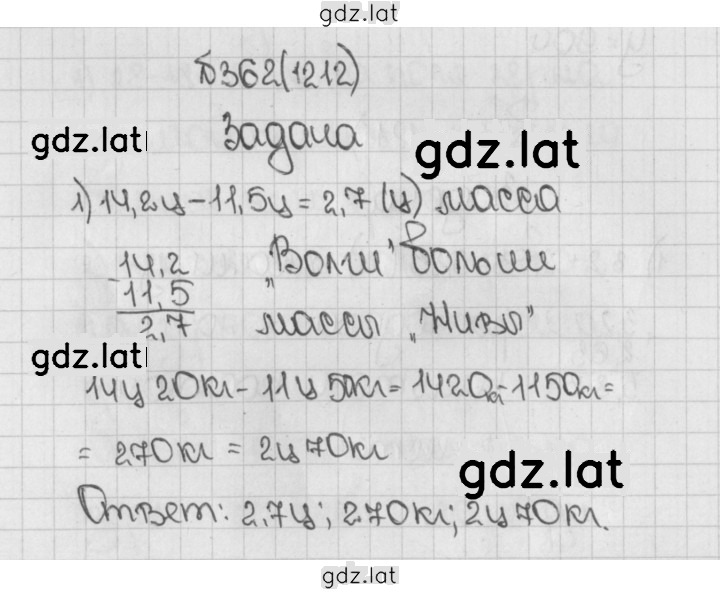 gdz.lat
№362(1212)
gdz.lat
Задача
gdz.lat
1) 14,2ц - 11,5ц = 2,7 (ц) масса
14,2 „Волги" больши
- 11,5
2,7 массы „Нивы"
gdz.lat
14ц 20кг - 11ц 50кг = 1420кг - 1150кг =
= 270кг = 2ц 70кг
gdz.lat
Ответ: 2,7ц; 270кг; 2ц 70кг.
gdz.lat